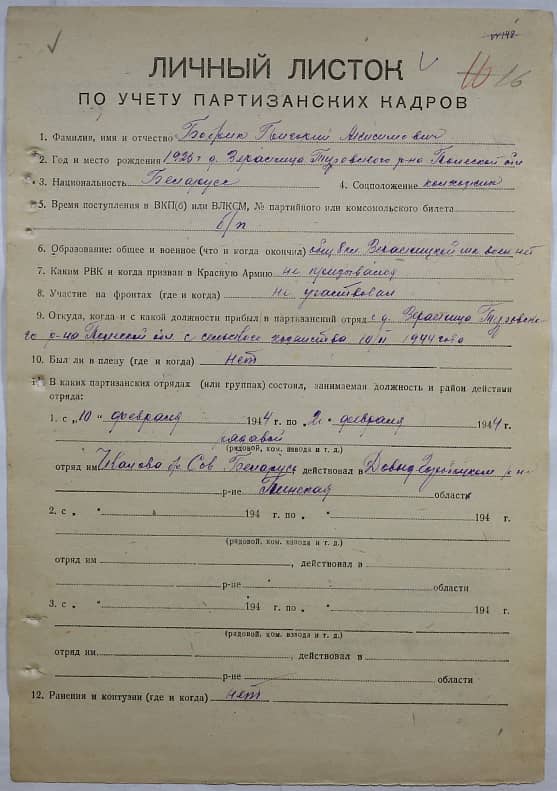 16
ЛИЧНЫЙ ЛИСТОК
ПО УЧЕТУ ПАРТИЗАНСКИХ КАДРОВ
1. Фамилия, имя и отчество Бобрик Анисимович
2. Год и место рождения 1926 г д. Верасница Туровского р-на Пинской обл
3. Национальность Беларусс 4. Соцположение колхозник
5. Время поступления в ВКП(б) или ВЛКСМ, № партийного или комсомольского билета
б/п
6. Образование: общее и военное (что и когда окончил) общ 8 кл Верасницкой шк воен нет
7. Каким РВК и когда призван в Красную Армию не призывался
8. Участие на фронтах (где и когда) не участвовал
9. Откуда, когда и с какой должности прибыл в партизанский отряд с д. Верасница Туровско-
го р-на Пинской обл с сельского хозяйства 10 II 1944 года
10. Был ли в плену (где и когда) нет
11. В каких партизанских отрядах (или группах) состоял, занимаемая должность и район действия
отряда:
1. с „10" февраля 1944 г. по „ " февраля 1944 г.
рядовой
(рядовой, ком. взвода и т. д.)
отряд им Иванова бр Сов Беларусь действовал в Давид Городоцком р-не
р-не Пинская области
2. с „ " 194 г. по „ " 194 г.
(рядовой, ком. взвода и т. д.)
отряд им , действовал в
р-не области
3. с „ " 194 г. по „ " 194 г.
(рядовой, ком. взвода и т. д.)
отряд им. , действовал в
р-не области
12. Ранения и контузии (где и когда) нет